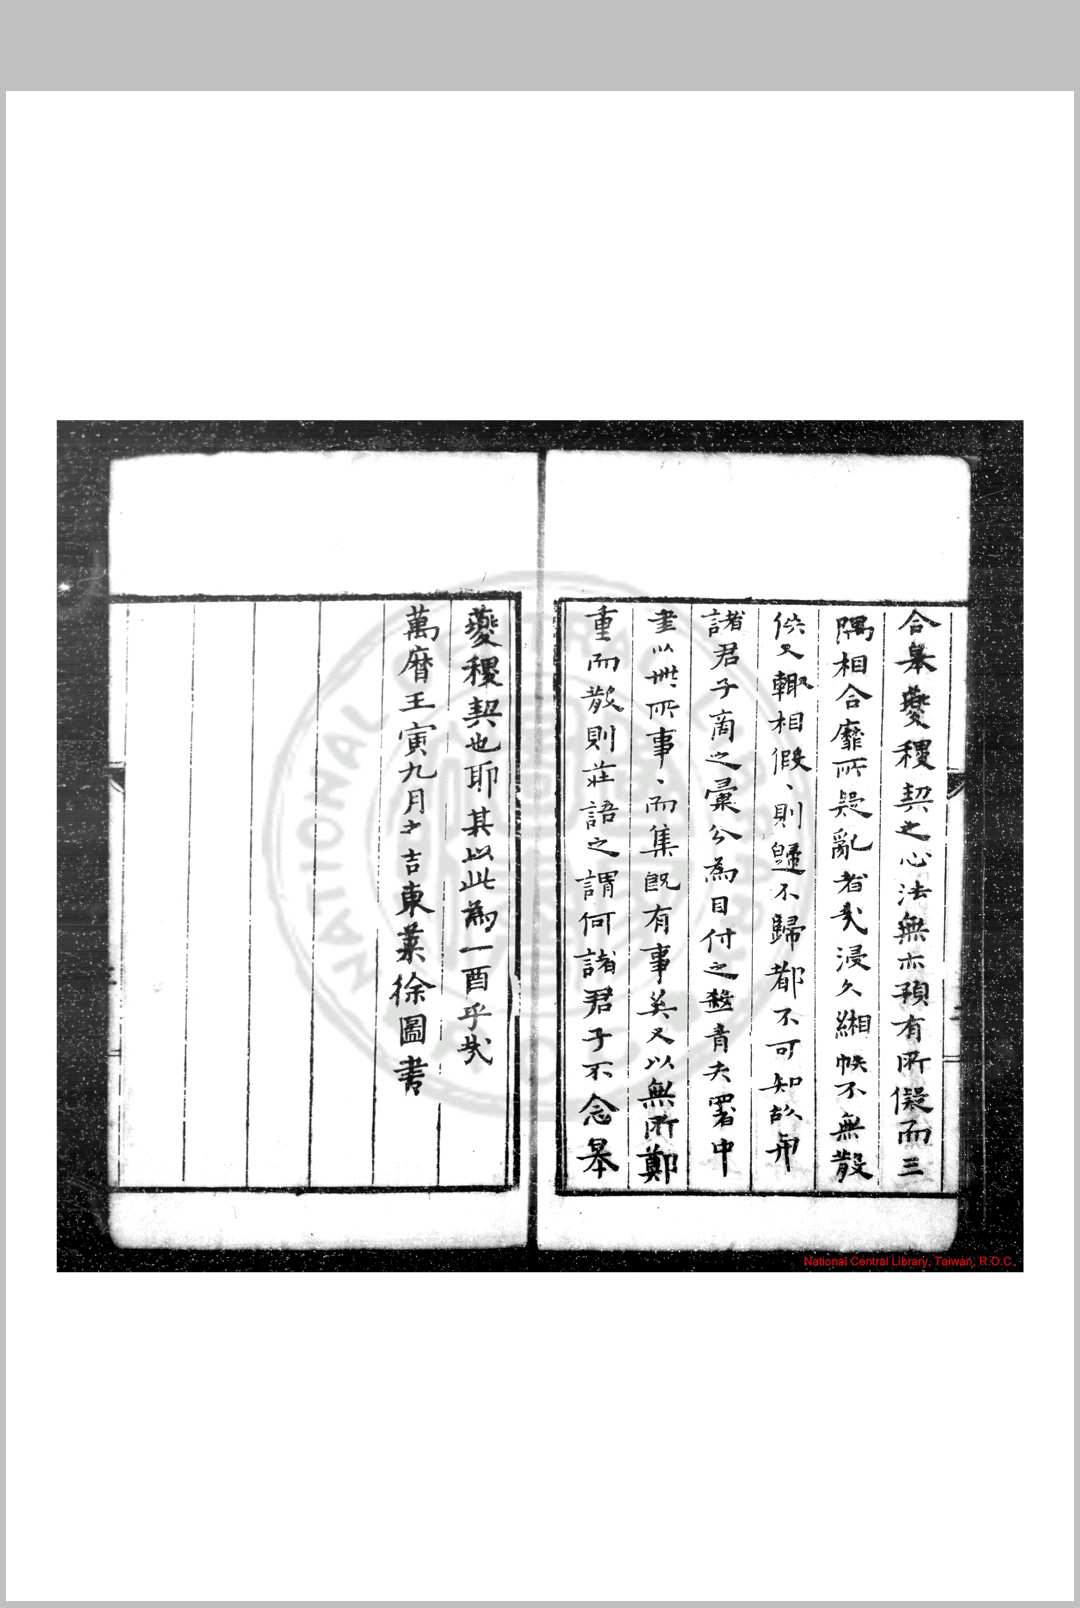 合皋夔稷契之心法無亦預有所儗而三
隅相合靡所疑亂者哉浸久緗帙不無散
佚又輙相假、則歸不歸都不可知故
諸君子商之彙公為目付之青夫署中
畫以無所事、而集既有事矣又以無所鄭
重而散則莊語之謂何諸君子不念皋
夔稷契也耶其以此為一酉乎哉
萬曆王寅九月之吉東萊徐圖書
NATIONAL CENTRAL LIBRARY
National Central Library, Taiwan, R.O.C.